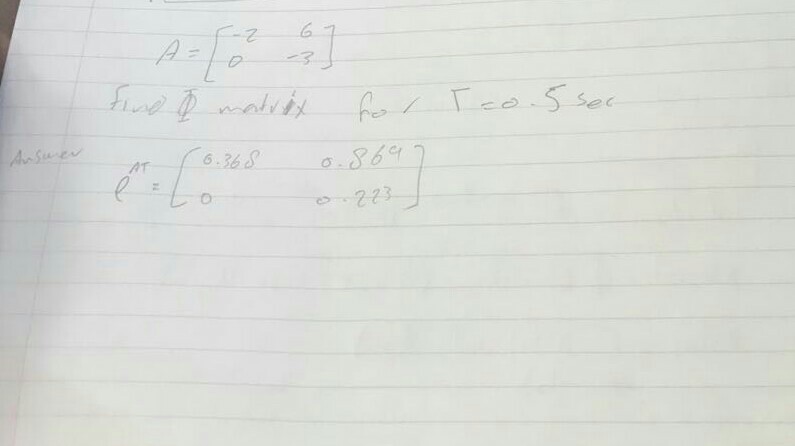 A = [ -2 6
0 -3 ]
Find Φ matrix for T = 0.5 sec
Answer
e^AT = [ 0.368 0.869
0 0.223 ]